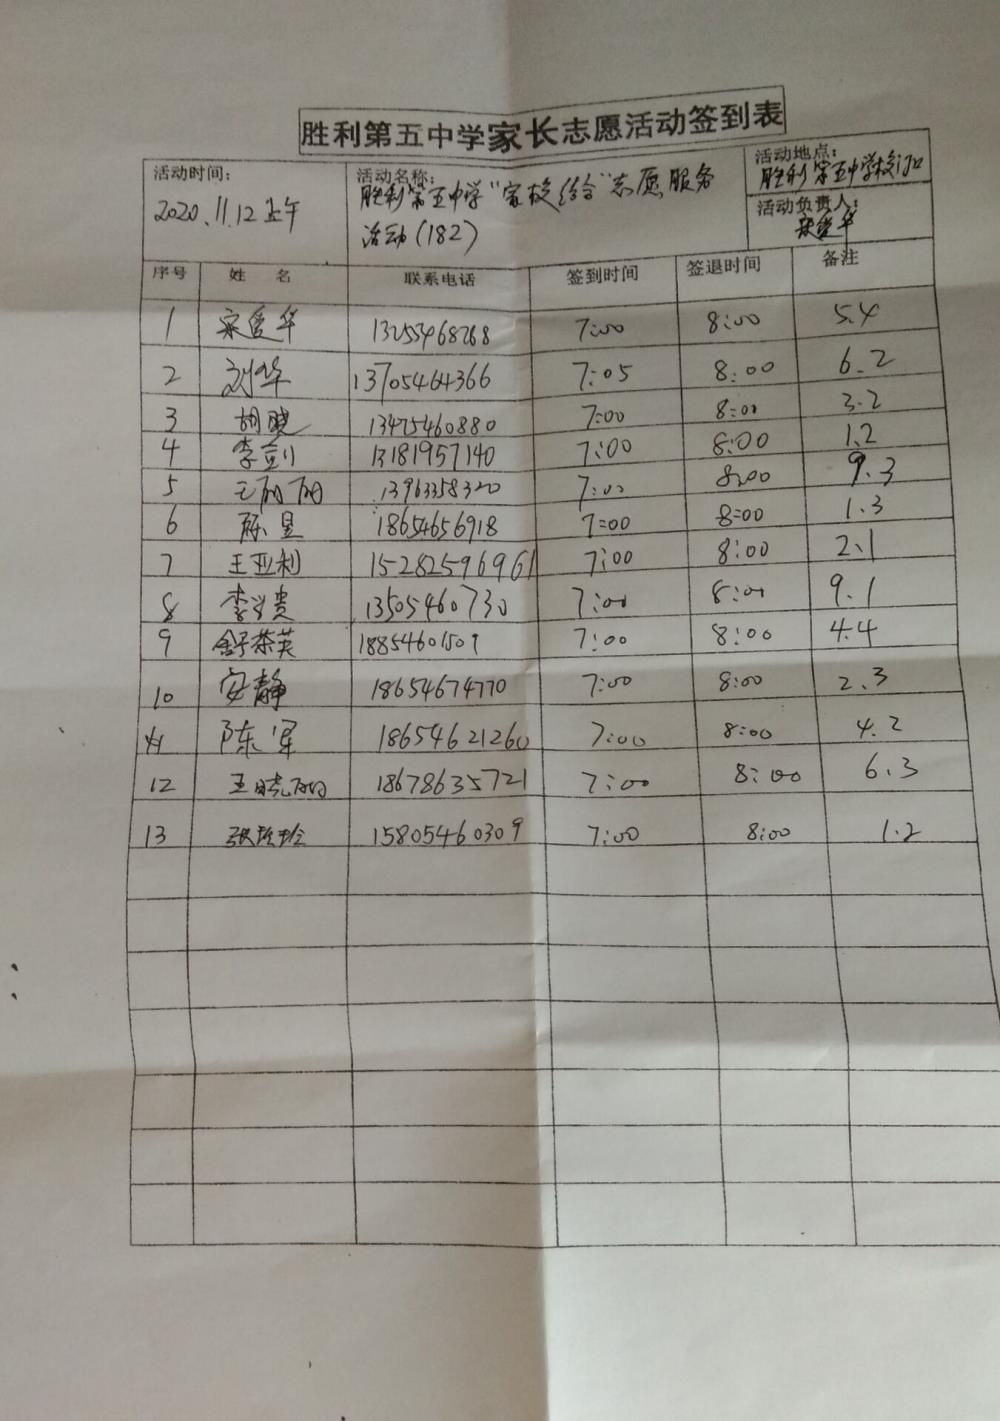 胜利第五中学家长志愿活动签到表
活动时间：
2020.11.12上午
活动名称：
胜利第五中学"家校结合"志愿服务
活动(182)
活动地点：
胜利第五中学校门口
活动负责人：
宋爱华
序号 姓 名 联系电话 签到时间 签退时间 备注
1 宋爱华 13255468268 7:00 8:00 5.4
2 刘华 13705464366 7:05 8:00 6.2
3 胡晓 13475460880 7:00 8:00 3.2
4 李剑 13181957140 7:00 8:00 1.2
5 王丽丽 13963358320 7:00 8:00 9.3
6 陈昱 18654656918 7:00 8:00 1.3
7 王亚利 15282596961 7:00 8:00 2.1
8 李学贵 13505460730 7:00 8:00 9.1
9 18854601509 7:00 8:00 4.4
10 安静 18654674770 7:00 8:00 2.3
11 陈军 18654621260 7:00 8:00 4.2
12 王晓丽 18678635721 7:00 8:00 6.3
13 15805460309 7:00 8:00 1.2